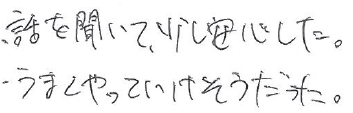 話を聞いて、少し安心した。
うまくやっていけそうだった。